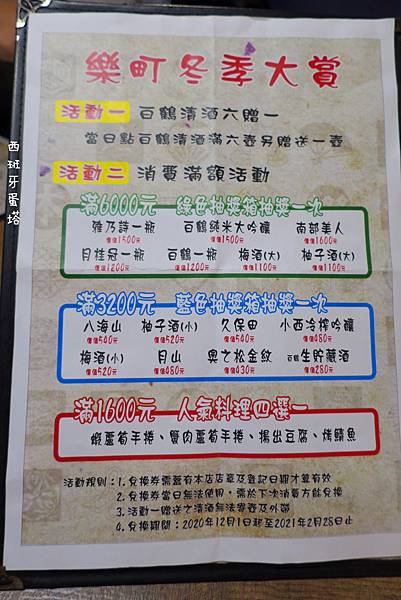 樂町冬季大賞
活動一 百鶴清酒六贈一
當日點百鶴清酒滿六壺另贈送一壺
活動二 消費滿額活動
滿6000元 綠色抽獎箱抽獎一次
雅乃詩一瓶 百鶴純米大吟釀 南部美人
價值1500元 價值1500元 價值1600元
月桂冠一瓶 百鶴一瓶 梅酒(大) 柚子酒(大)
價值1200元 價值1200元 價值1100元 價值1100元
滿3200元 藍色抽獎箱抽獎一次
八海山 柚子酒(小) 久保田 小西冷榨吟釀
價值540元 價值520元 價值540元 價值480元
梅酒(小) 月山 奧之松金紋 百鶴生貯藏酒
價值520元 價值480元 價值430元 價值280元
滿1600元 人氣料理四選一
蝦蘆筍手捲、蟹肉蘆筍手捲、揚出豆腐、烤鯖魚
活動規則：1.兌換券需蓋有本店店章及登記日期才算有效
2.兌換券當日無法使用，需於下次消費方能兌換
3.活動一贈送之清酒無法寄壺及外帶
4.兌換期間：2020年12月1日起至2021年2月28日止
西班牙蛋塔